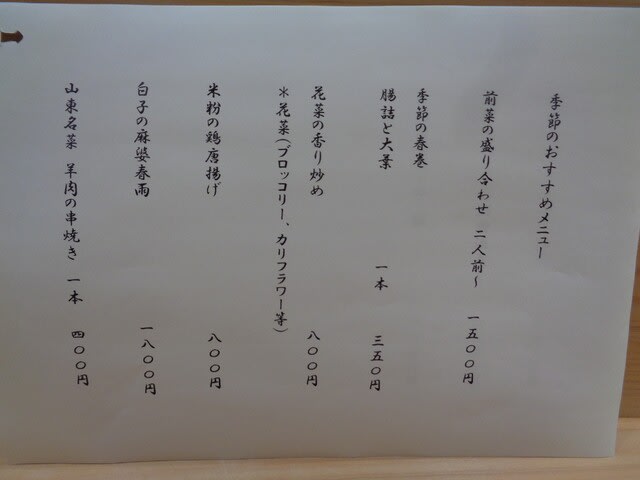 季節のおすすめメニュー
前菜の盛り合わせ 二人前～ 一五〇〇円
季節の春巻
腸詰と大葉 一本 三五〇円
花菜の香り炒め 八〇〇円
＊花菜(ブロッコリー、カリフラワー等)
米粉の鶏唐揚げ 八〇〇円
白子の麻婆春雨 一八〇〇円
山東名菜 羊肉の串焼き 一本 四〇〇円